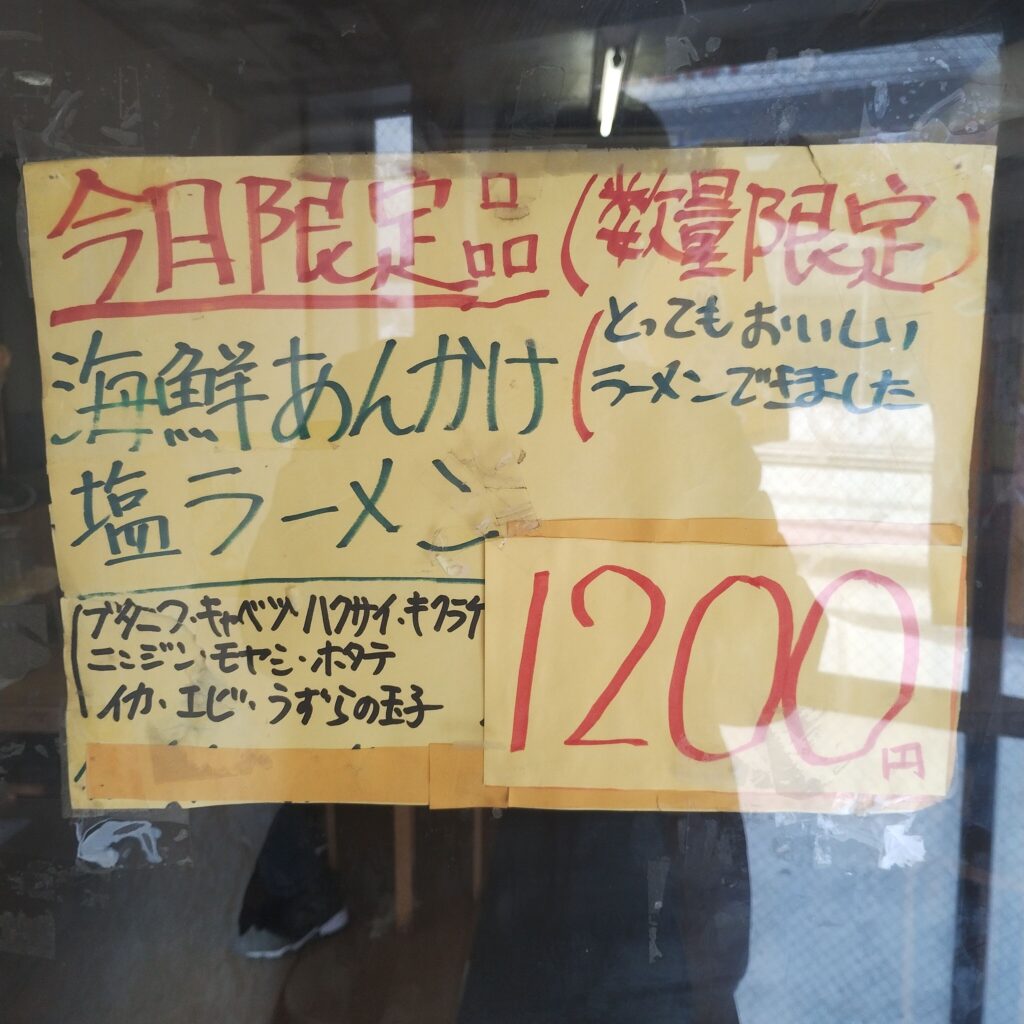 今日限定品(数量限定)
海鮮あんかけ
(とってもおいしい
ラーメンできました
塩ラーメン
(ブタニク・キャベツ・ハクサイ・キクラゲ
ニンジン・モヤシ・ホタテ
イカ・エビ・うずらの玉子
1200円